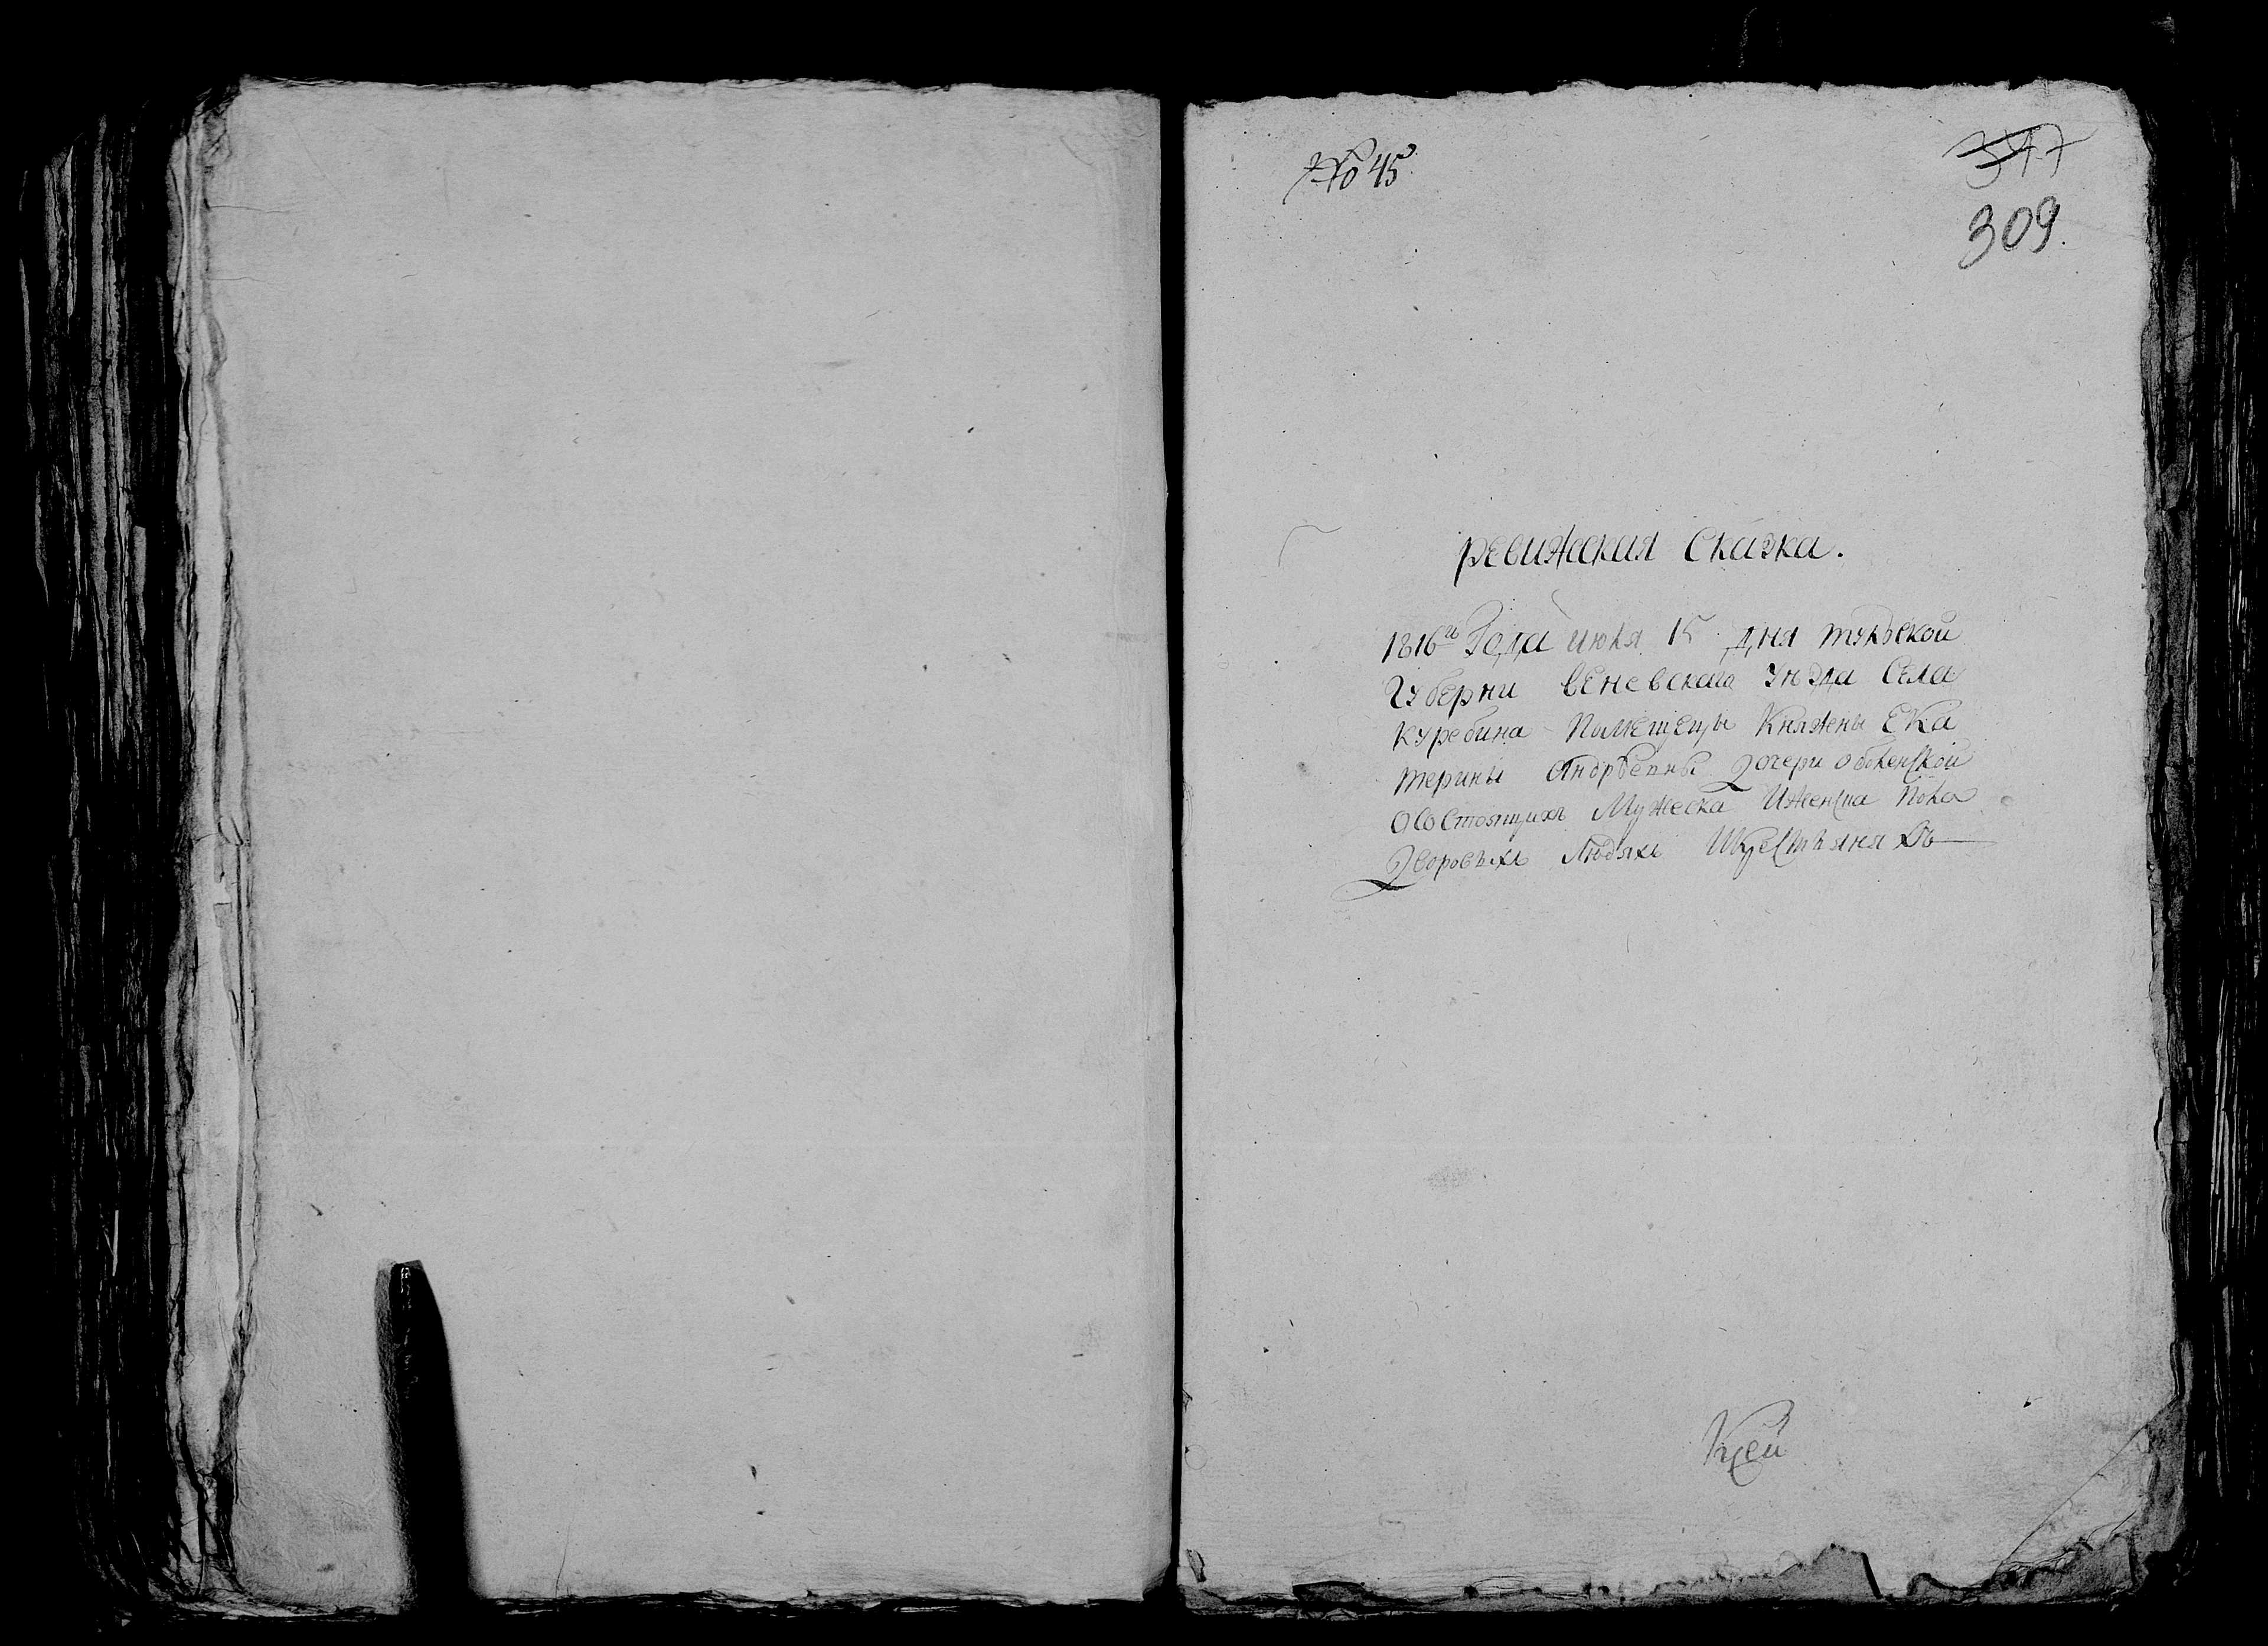 № 45
347
309.
Ревижская Сказка.
1816го Года июля 15 дня тульской
Губерни веневского уизда Села
куребина помещецы Княжены Ека
терины Андревны Дочери оболенской
Осостоящихъ Мужеска Иженска пола
Дворовыхъ Людяхъ Икрестьяняхъ